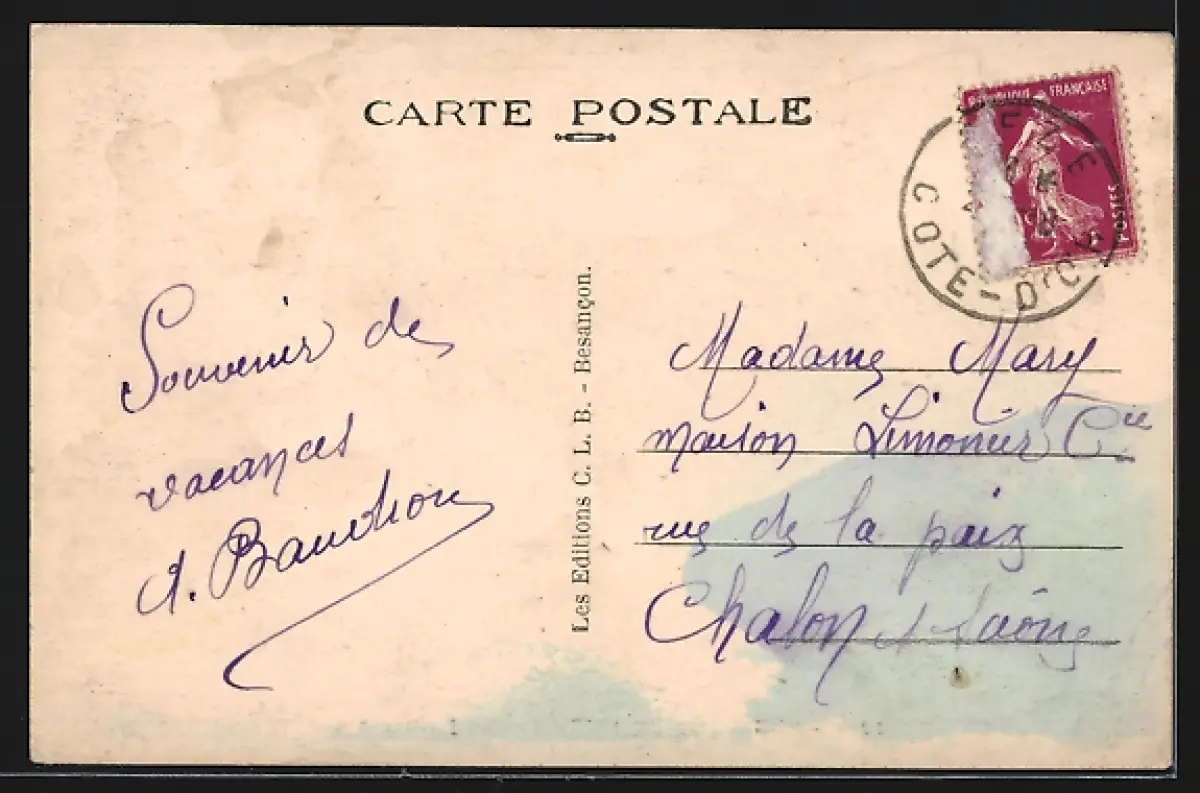 CARTE POSTALE
RÉPUBLIQUE FRANÇAISE
POSTES
COTE-D'OR
Souvenir de
vacances
A. Baudron
Les Editions C. L. B. - Besançon.
Madame Mary
maison Limonier Cie
rue de la paix
Chalon s Saône